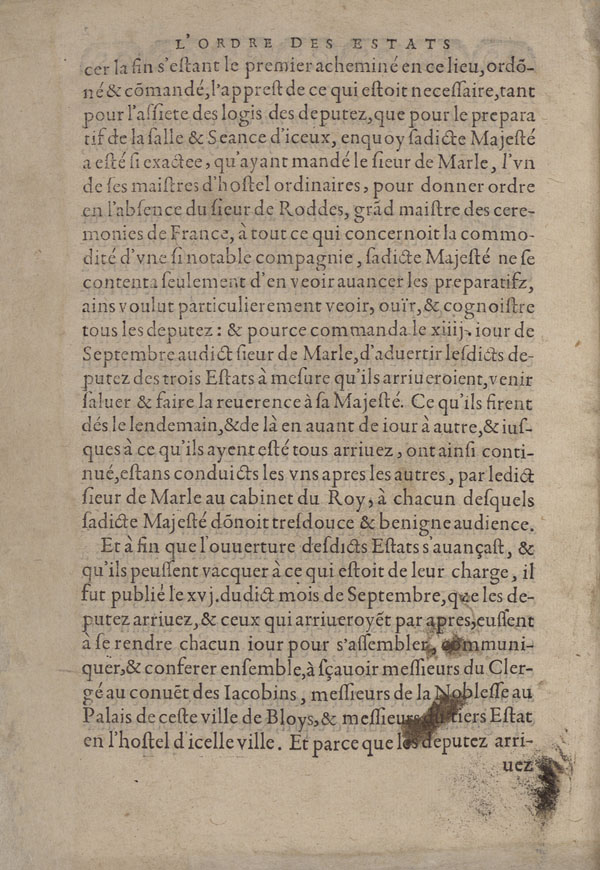 L'ORDRE DES ESTATS
cer la fin s'eſtant le premier acheminé en ce lieu, ordõ-
né & cõmandé, l'appreſt de ce qui eſtoit neceſſaire, tant
pour l'aſsiete des logis des deputez, que pour le prepara
tif de la ſalle & Seance d'iceux, enquoy ſadicte Majeſté
a eſté ſi exactee, qu'ayant mandé le ſieur de Marle, l'vn
de ſes maiſtres d'hoſtel ordinaires, pour donner ordre
en l'abſence du ſieur de Roddes, grãd maiſtre des cere-
monies de France, à tout ce qui concernoit la commo-
dité d'vne ſi notable compagnie, ſadicte Majeſté ne ſe
contenta ſeulement d'en veoir auancer les preparatifz,
ains voulut particulierement veoir, ouïr, & cognoiſtre
tous les deputez: & pource commanda le xiiij. iour de
Septembre audict ſieur de Marle, d'aduertir leſdicts de-
putez des trois Eſtats à meſure qu'ils arriueroient, venir
ſaluer & faire la reuerence à ſa Majeſté. Ce qu'ils firent
dés le lendemain, & de là en auant de iour à autre, & iuſ-
ques à ce qu'ils ayent eſté tous arriuez, ont ainſi conti-
nué, eſtans conduicts les vns apres les autres, par ledict
ſieur de Marle au cabinet du Roy, à chacun deſquels
ſadicte Majeſté dõnoit treſdouce & benigne audience.
Et à fin que l'ouuerture deſdicts Eſtats s'auançaſt, &
qu'ils peuſſent vacquer à ce qui eſtoit de leur charge, il
fut publié le xvj. dudict mois de Septembre, que les de-
putez arriuez, & ceux qui arriueroyẽt par apres, euſſent
à ſe rendre chacun iour pour s'aſſembler, communi-
quer, & conferer enſemble, à ſçauoir meſſieurs du Cler-
gé au conuẽt des Iacobins, meſſieurs de la Nobleſſe au
Palais de ceſte ville de Bloys, & meſſieurs du tiers Eſtat
en l'hoſtel d'icelle ville. Et parce que les deputez arri-
uez